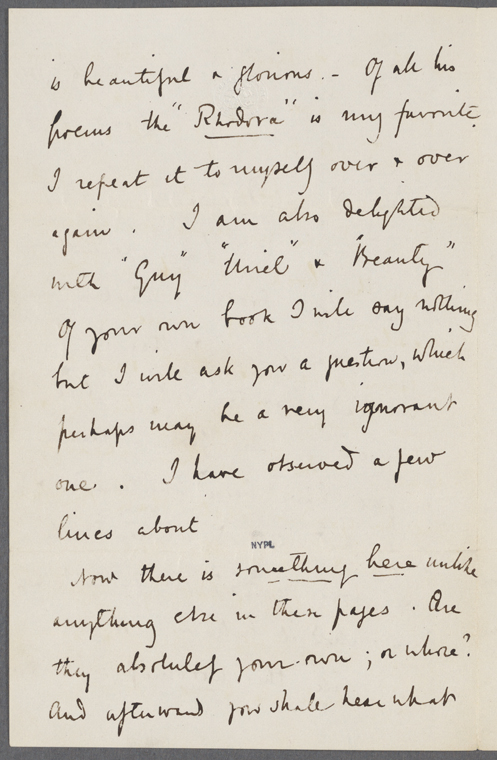 is beautiful & glorious. - Of all his
poems the "Rhodora" is my favorite
I repeat it to myself over & over
again. I am also delighted
with "Guy" "Uriel" & "Beauty"
Of your own book I will say nothing
but I will ask you a question, which
perhaps may be a very ignorant
one. I have observed a few
lines about
NYPL
Now there is something here unlike
anything else in these pages. Are
they absolutely your own; or whose?
And afterward you shall hear what